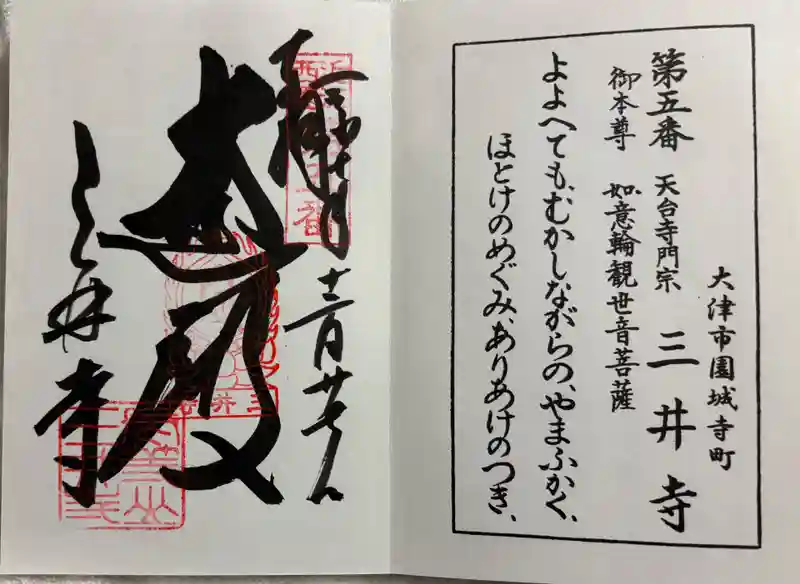 大津市園城寺町
第五番 天台寺門宗 三井寺
御本尊 如意輪観世音菩薩
よよへても、むかしながらの、やまふかく、
ほとけのめぐみ、ありあけのつき、
大悲殿
三井寺